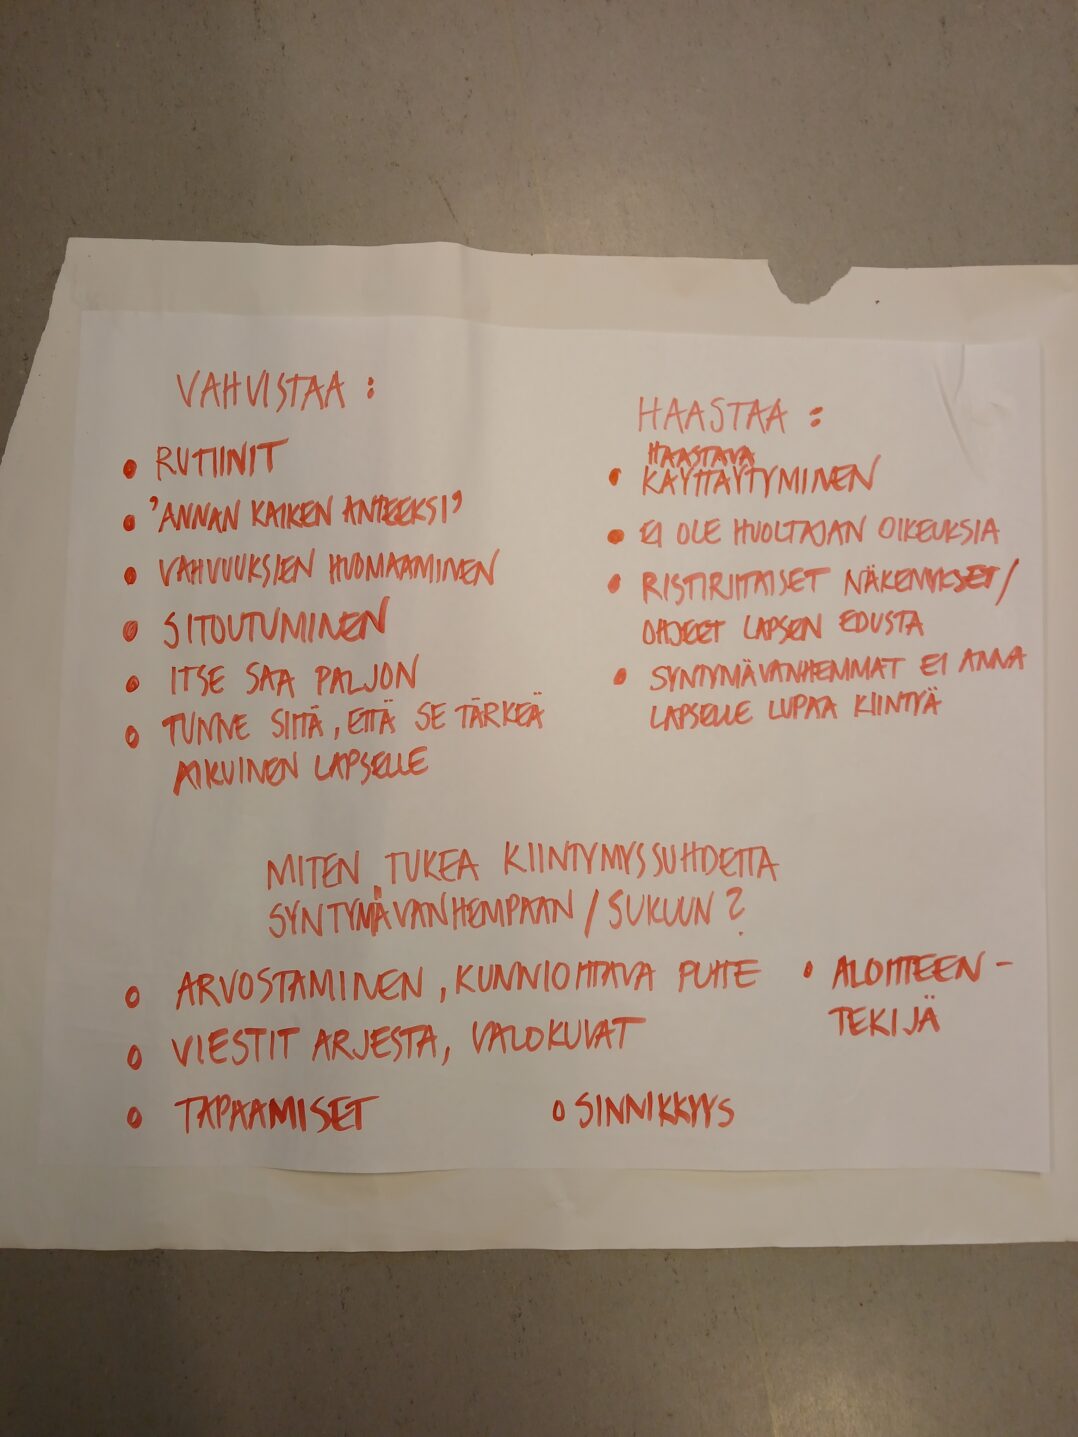 VAHVISTAA :
• RUTIINIT
• 'ANNAN KAIKEN ANTEEKSI'
• VAHVUUKSIEN HUOMAAMINEN
• SITOUTUMINEN
• ITSE SAA PALJON
• TUNNE SIITÄ, ETTÄ SE TÄRKEÄ
AIKUINEN LAPSELLE
HAASTAA :
HAASTAVA
• KÄYTTÄYTYMINEN
• EI OLE HUOLTAJAN OIKEUKSIA
• RISTIRIITAISET NÄKEMYKSET /
OHJEET LAPSEN EDUSTA
• SYNTYMÄVANHEMMAT EI ANNA
LAPSELLE LUPAA KIINTYÄ
MITEN TUKEA KIINTYMYSSUHDETTA
SYNTYMÄVANHEMPAAN / SUKUUN ?
• ARVOSTAMINEN, KUNNIOITTAVA PUHE
• VIESTIT ARJESTA, VALOKUVAT
• TAPAAMISET
• SINNIKKYYS
• ALOITTEEN -
TEKIJÄ